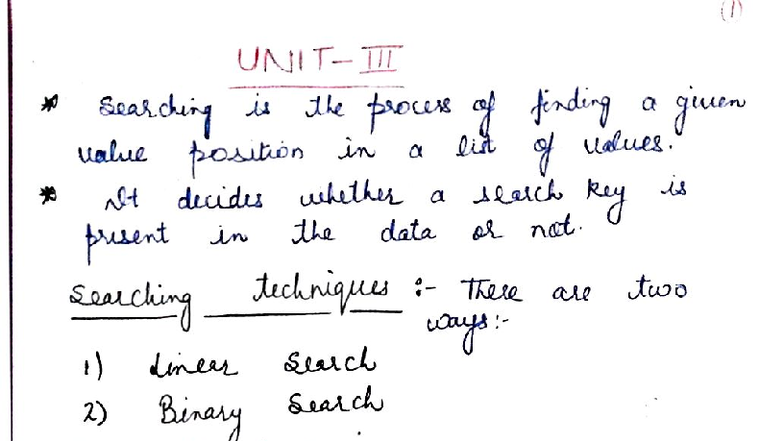 (1)
UNIT-III
* Searching is the process of finding a given
value position in a list of values.
* It decides whether a search key is
present in the data or not.
Searching techniques :- There are two
ways:-
1) Linear Search
2) Binary Search